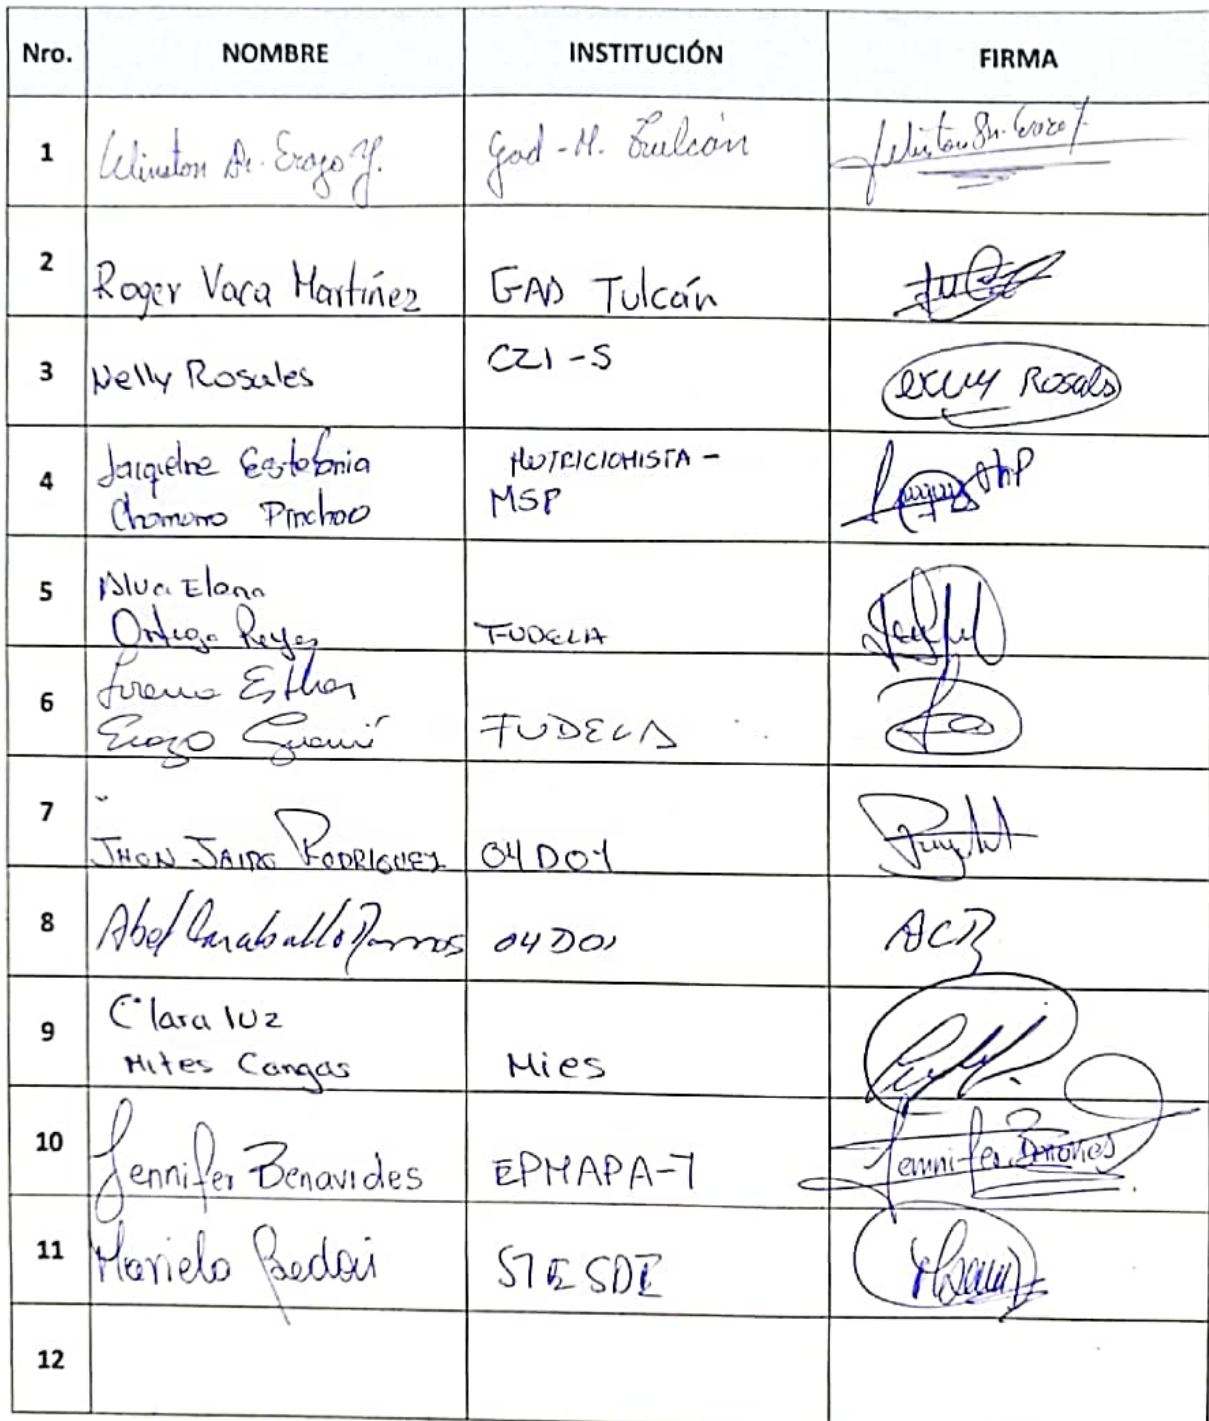 Nro. NOMBRE INSTITUCIÓN FIRMA
1 Winston Dr. Erazo Y. Gad - M. Tulcán
2 Roger Vaca Martínez GAD Tulcán
3 Nelly Rosales CZ1 - S Rosales
4 Jacqueline Estefania NUTRICIONISTA -
Chamorro Pinchao MSP
5 Alva Elena
Ortega Reyes FUDELA
6 Lorena Esther
Erazo FUDELA
7 JHON JAIRO RODRIGUEZ 04D01
8 Abel Caraballo Ramos 04D01 ACR
9 Clara luz
Mites Cangas Mies
10 Jennifer Benavides EPMAPA-T Jennifer
11 Mariela Bedón STESDI
12